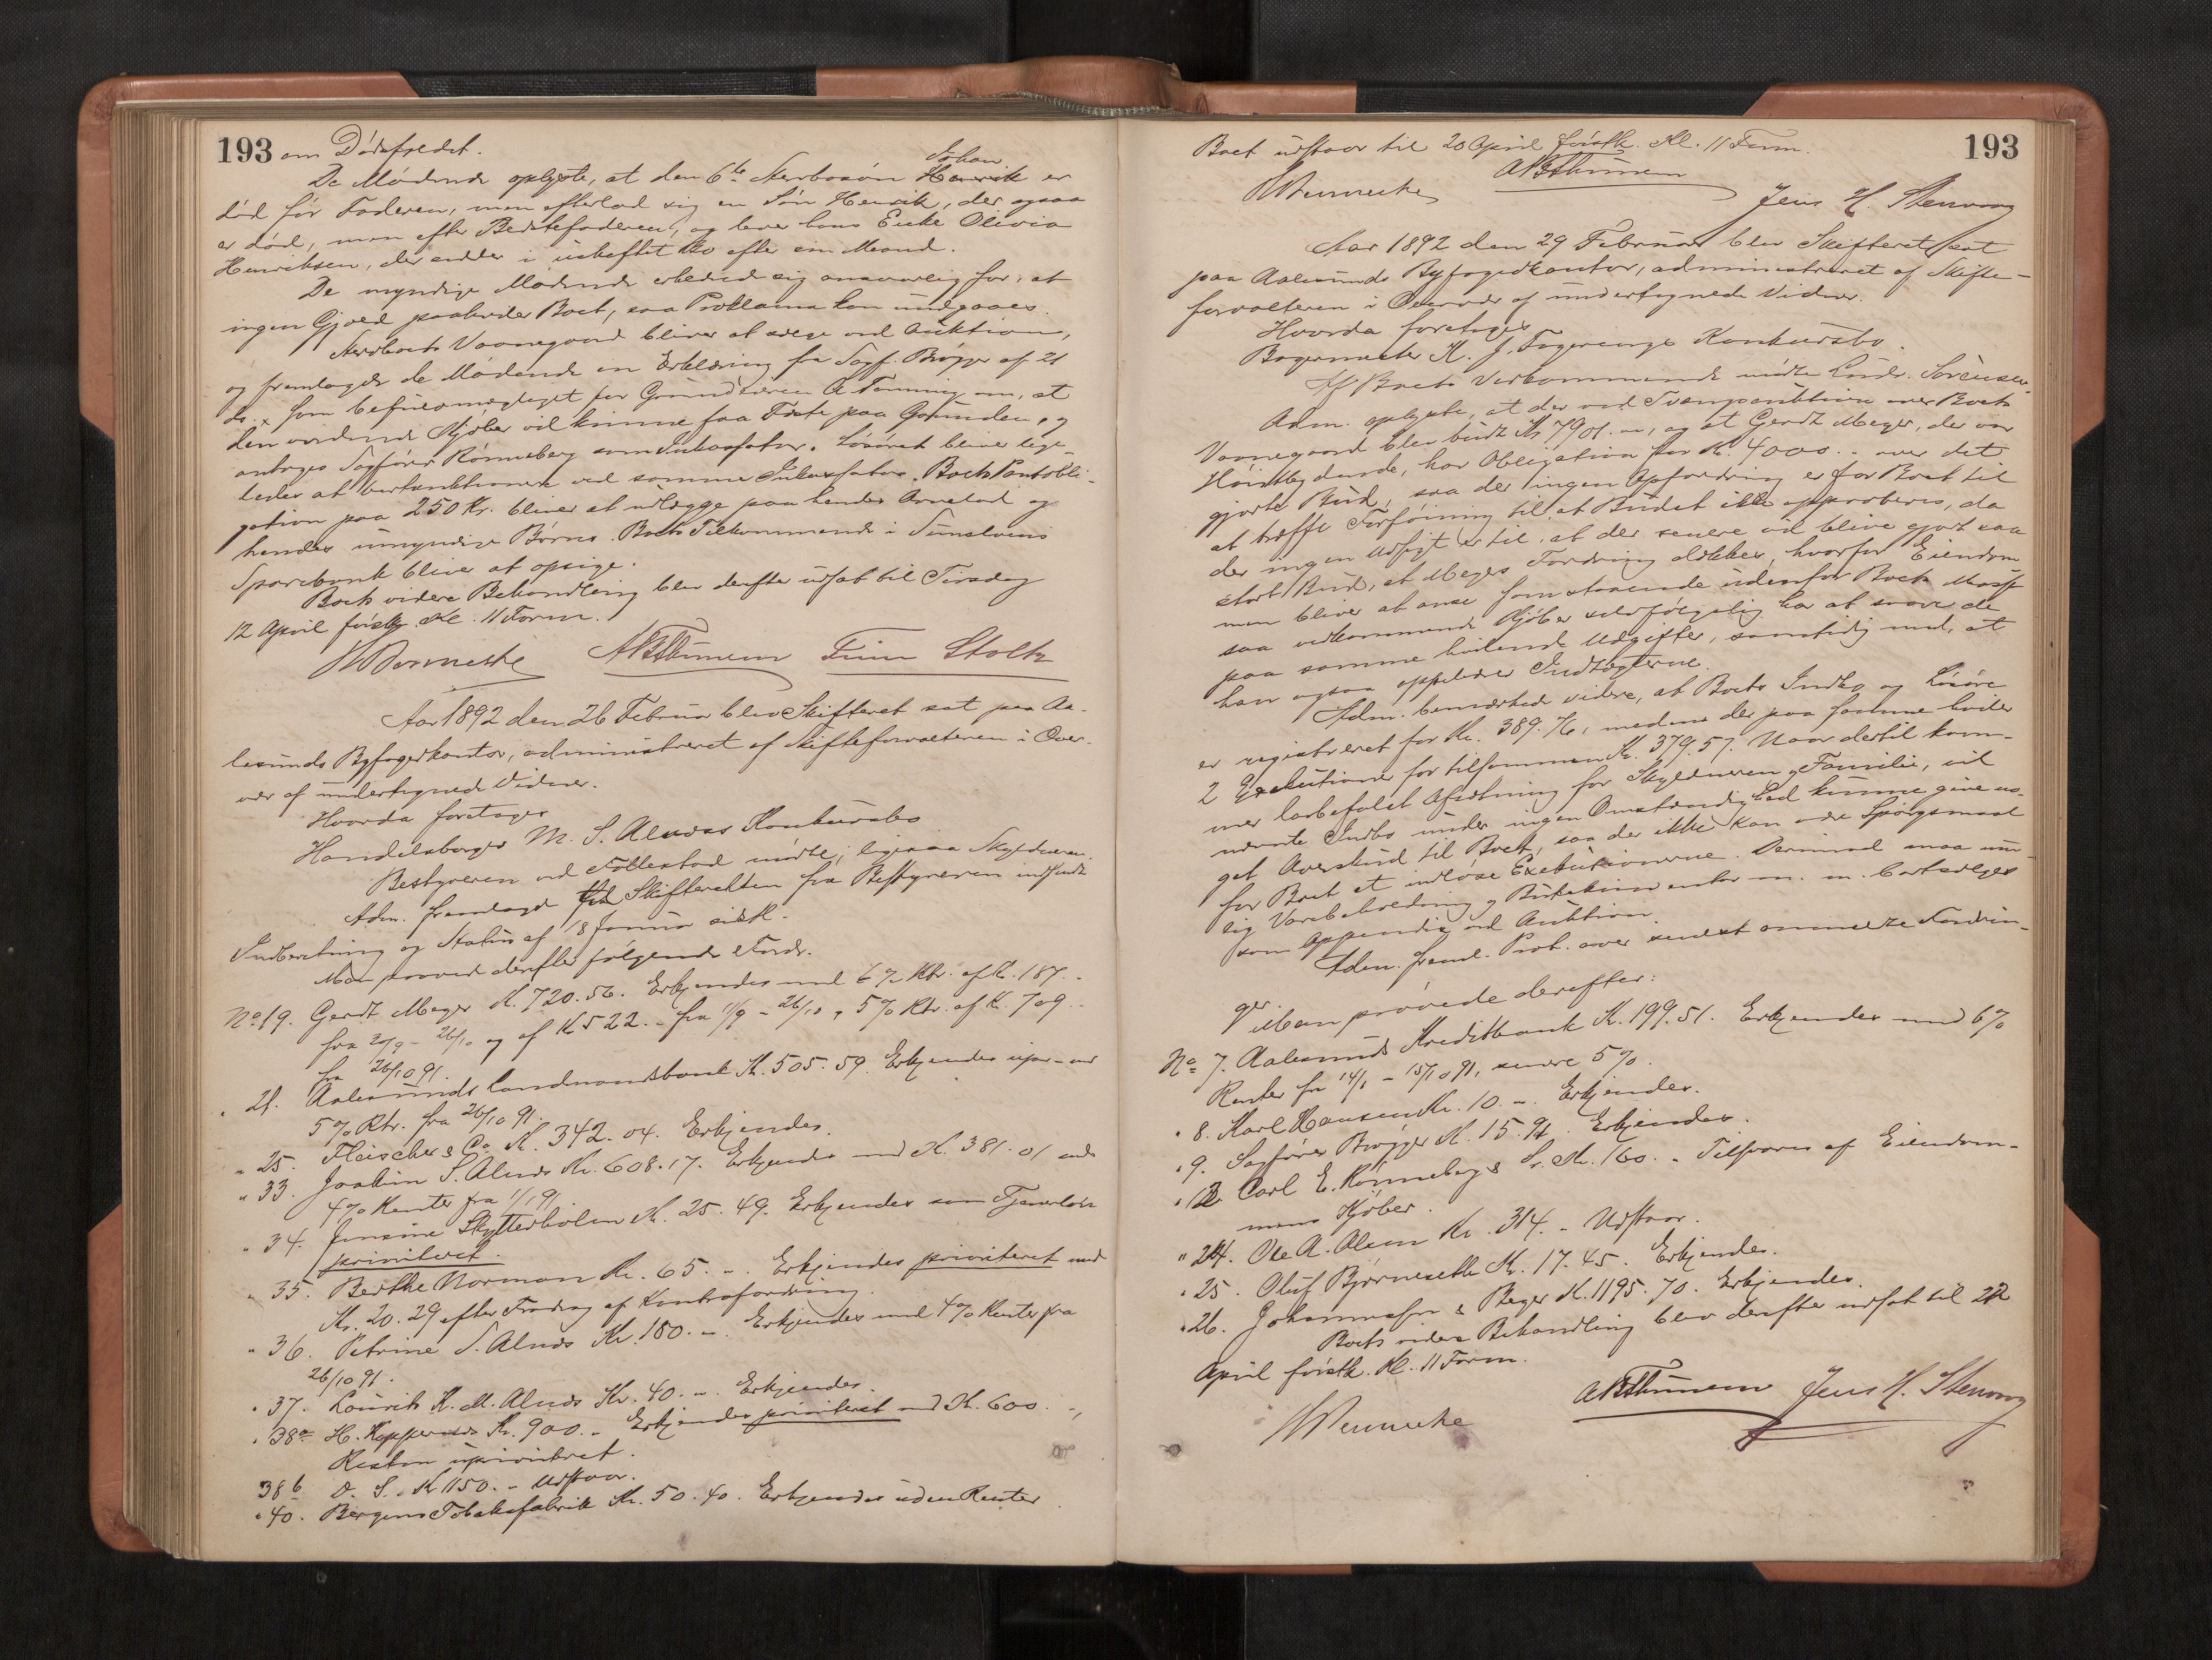 193 om Dødsfredet.
De Mødende oplyste, at den 6te Stervbosøn Johan Henrik er
død før Faderen, men efterlod sig en Søn Henrik, der ogsaa
er død, men efter Bedstefaderen, og lever hans Enke Olivia
Henriksen, der sidder i uskiftet Bo efter sin Mand.
De myndige Mødende erklæred sig ansvarlig for, at
ingen Gjæld paahviler Boet, saa Proklama kan undgaaes.
Stervboets Vaanegaard bliver at sælge ved Auktion,
og fremlagde de Mødende en Erklæring fra Sagf. Brøgger af 21
ds. som befuldmægtiget for Grundeieren A Tønning om, at
den vordende Kjøber vil kunne faa Fæste paa Grunden, og
antoges Sagfører Rønneberg som Inkassator. Løsøret bliver lige-
ledes at bortauktionere ved samme Inkassator. Boets Pantobli-
gation paa 250 Kr. bliver at udlægge paa hendes Arvelod og
hendes umyndige Børns. Boets Tilkommende i Sunelvens
Sparebank bliver at opsige.
Boets videre Behandling blev derefter udsat til Tirsdag
12 April førstk. Kl. 11 Form.
Finn Stoltz
Aar 1892 den 26 Februar blev Skifteret sat paa Aa-
lesunds Byfogedkontor, administreret af Skifteforvalteren i Over-
vær af undertegnede Vidner.
Hvorda foretoges
Handelsborger M. S. Alnæs Konkursbo
Bestyreren ved Follestad mødte, ligesaa Skyldneren.
Adm. fremlagde Skifteretten fra Bestyreren indsendte
Indberetning og Status af 18 Januar sidstl.
Man prøved derefter følgende Fordr.
No 19. Gerdt Meyer K. 720.56. Erkjendes med 6 % Rtr. af K. 187.-
fra 2/9 - 26/10 og af K 522.- fra 1/9 - 26/10, 5 % Rtr. af K. 709.-
fra 26/10 91.
" 21. Aalesunds Landmandsbank K. 505.59. Erkjendes med
5 % Rtr. fra 26/10 91.
" 25. Fleischer & Co. K. 342.04. Erkjendes.
" 33. Joakim S. Alnæs Kr. 608.17. Erkjendes med K. 381.01 med
4 % Renter fra 1/1 91.
" 34. Jensine Skytterholm K. 25.49. Erkjendes som Tjenerløn
prioriteret.
" 35. Berthe Norman Kr. 65.-. Erkjendes prioriteret med
Kr. 20.29 efter Fradrag af Kontrafordring.
" 36. Petrine S. Alnæs Kr. 180.-. Erkjendes med 4 % Renter fra
26/10 91.
" 37. Laurits K. M. Alnæs Kr. 40.-. Erkjendes.
" 38a H. Koppernæs Kr. 900.- Erkjendes prioriteret med K. 600.-,
Resten uprioritret.
38 b. D. S. K 1150.- Udstaar.
" 40. Bergens Tobaksfabrik Kr. 50.40. Erkjendes uden Renter.
193
Boet udstaar til 20 April førstk. Kl. 11 Form.
Jens H. Stenvaag
Aar 1892 den 29 Februar blev Skifteret sat
paa Aalesunds Byfogedkontor, administreret af Skifte-
forvalteren i Overvær af undertegnede Vidner.
Hvorda foretoges
Bagermester K. J. Fagerengs Konkursbo.
Af Boets Vedkommende mødte Sørensen.
Adm. oplyste, at der ved Tvangsauktion over Boets
Vaanegaard blev budt Kr 7901.-, og at Gerdt Meyer, der var
Høistbydende, har Obligation for K. 4000.- over det
gjorte Bud, saa der ingen Opfordring er for Boet til
at træffe Forføining til, at Budet ikke approberes, da
der ingen Udsigt er til, at der senere vil blive gjort saa
stort Bud, at Meyers Fordring dækkes, hvorfor Eiendom-
men bliver at anse som staaende udenfor Boets Masse
saa vedkommende Kjøber selvfølgelig har at svare de
paa samme hvilende Udgifter, samtidig med, at
han ogsaa oppebærer Indtægterne.
Adm. bemærkede videre, at Boets Indbo og Løsøre
er registreret for Kr. 389.76, medens der paa samme hviler
2 Exekutioner for tilsammen K. 379.57. Naar dertil kom-
mer lovbefalet Afsætning for Skyldneren og Familie, vil
nævnte Indbo under ingen Omstændighed kunne give no-
get Overskud til Boet, saa der ikke kan være Spørgsmaal
for Boet at indløse Exekutionerne. Derimod maa
sig Varebeholdning og Butikinventar m. m. bortsælges
som ved Auktion.
Adm. freml. Prot. over senest anmeldte Fordrin-
ger.
Man prøvede derefter:
No 7. Aalesunds Kreditbank K. 199.51. Erkjendes med 6 %
Renter fra 14/1 - 15/10 91, senere 5 %.
" 8. Karl Hansen Kr. 10.-. Erkjendes.
" 9. Sagfører Brøgger K. 15.94. Erkjendes.
" 12 Carl E. Rønneberg & S. Kr. 160.- Tilsvares af Eiendom-
mens Kjøber.
" 24. Ole A. Olsen Kr. 314.- Udstaar.
" 25. Oluf Bjørneseth K. 17.45. Erkjendes.
" 26. Johannessen & Beyer K. 1195.70. Erkjendes.
Boets videre Behandling blev derefter udsat til 22
April førstk. Kl. 11 Form.
Jens H. Stenvaag